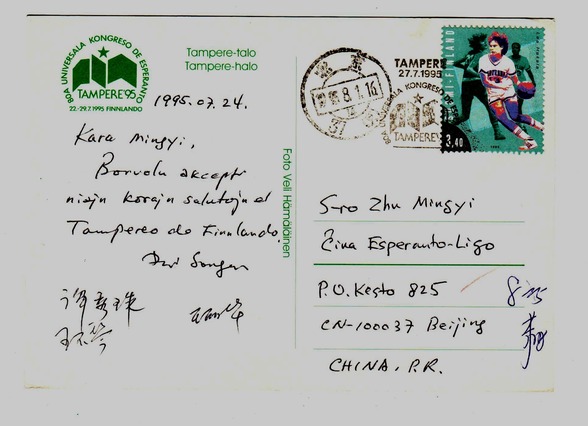 80A UNIVERSALA KONGRESO DE ESPERANTO
TAMPERE'95
22.-29.7.1995 FINNLANDO
Tampere-talo
Tampere-halo
1995.07.24.
Kara Mingyi,
Bonvolu akcepti
niajn korajn salutojn el
Tampereo de Finnlando.
Foto Veli Hämäläinen
TAMPERE
27.7.1995
TAMPERE
SUOMI-FINLAND
3,40
S-ro Zhu Mingyi
Ĉina Esperanto-Ligo
P.O. Kesto 825
CN-100037 Beijing
CHINA, P.R.